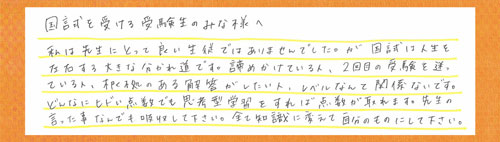 国試を受ける受験生のみな様へ
私は先生にとって良い生徒ではありませんでした。が 国試は人生を
左右する大きな分かれ道です。諦めかけている人、2回目の受験を迷っ
ている人、根拠のある解答がしたい人、レベルなんて関係ないです。
どんなにヒドい点数でも思考型学習をすれば点数が取れます。先生の
言った事なんでも吸収して下さい。全て知識に変えて自分のものにして下さい。